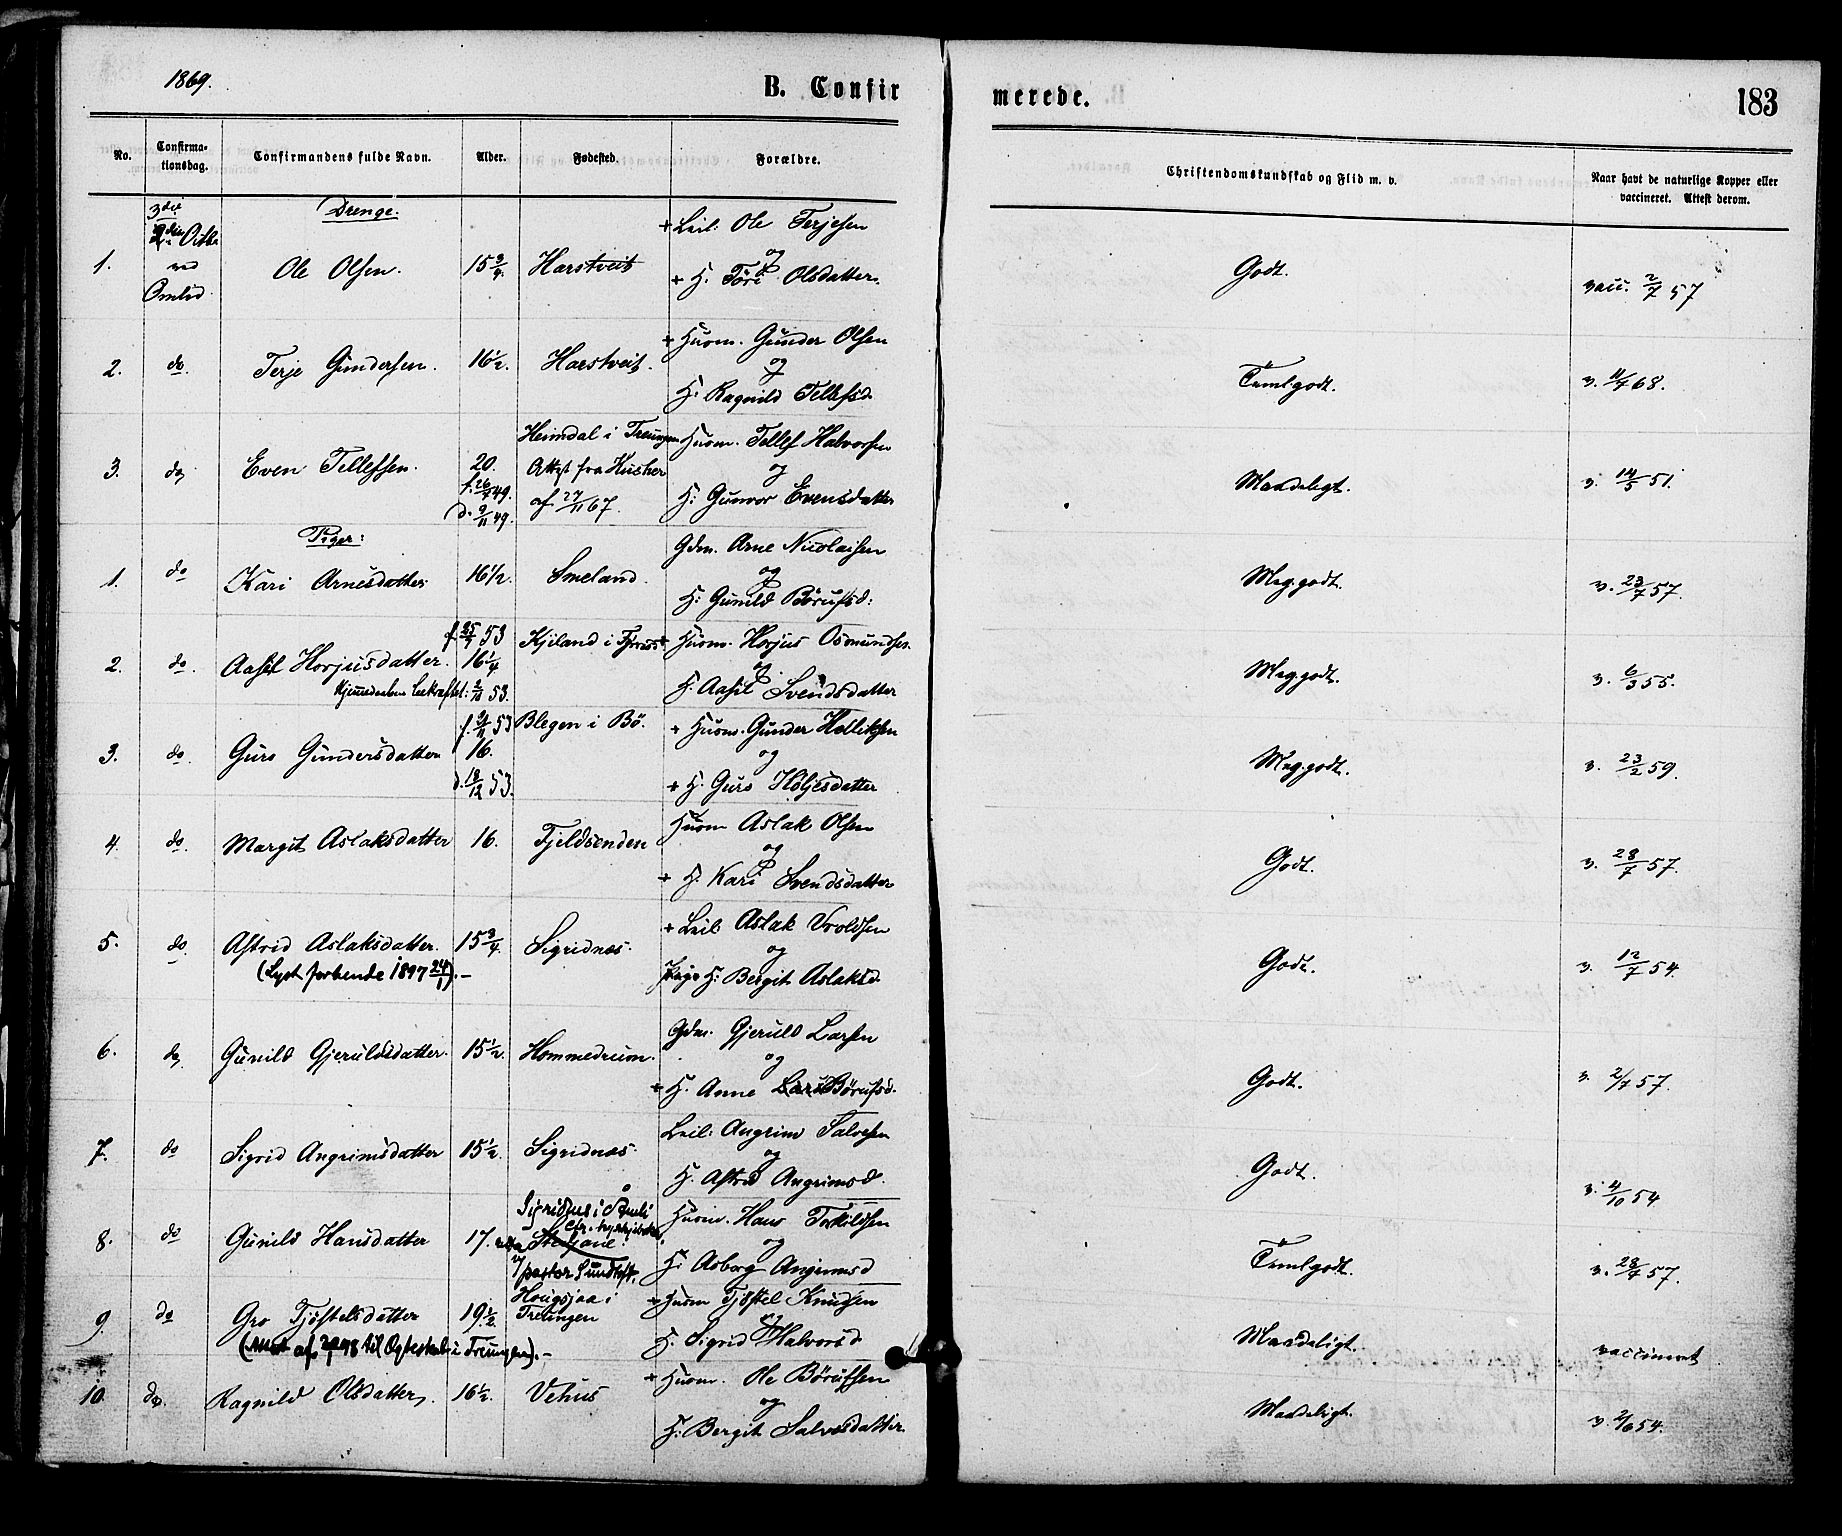 1869.
B. Confirmerede.
183
No. Confirmationsdag. Confirmandens fulde Navn. Alder. Fødested. Forældre. Christendomskundskab og Flid m. v. Naar havt de naturlige Kopper eller vaccineret. Attest derom.
Drenge.
1. Ole Olsen. 15 3/4. Harstveit + Leil: Ole Terjesen
og
+ H. Töre Olsdatter. Godt. vacc. 2/7 57
2. do. Terje Gundersen. 16 1/2. Harstveit. + Huusm. Gunder Olsen
og
H. Ragnild Tellefsd. Temlgodt. v. 11/7 68.
3. do Even Tellefsen. 20. Heimdal i Treungen Huusm. Tellef Halvorsen
f. 26/7 49. Attest fra
d. 9/11 49. af 27/11 67.
og
H: Gunvor Evensdatter Maadeligt. v. 14/5 51.
Piger:
1. do Kari Arnesdatter 16 1/2. Smeland. Gdm. Arne Nicolaisen
og
H: Gunild Börufsd: Meg.godt. v. 23/7 57.
2. do. Aasil Horjusdatter. f. 25/7 53
16 1/4 Kjiland i Huusm. Horjus Osmundsen.
Hjemmedaaben bekræftet: 2/10 53.
og
H. Aasil Svendsdatter Meg.godt. v. 6/3 55.
3. do. Guro Gundersdatter 16. Blegen i Bö. + Huusm. Gunder Helliksen
d. 18/12 53.
og
+ H. Guro Höljesdatter Meg.godt. v. 23/2 59.
4. do. Margit Aslaksdatter 16. Fjeldsenden Huusm Aslak Olsen
og
+ H. Kari Svendsdatter Godt. v. 28/7 57.
5. do Astrid Aslaksdatter. 15 3/4. Sigridnæs. + Leil. Aslak Vroldsen
og
H: Bergit Aslaksd. Godt. v. 12/7 54.
6. do Gunild Gjeruldsdatter. 15 1/2. Hommedrum. Gdm. Gjeruld Larsen
og
+ H. Anne Börufsd. Godt. v. 2/7 57.
7. do Sigrid Angrimsdatter 15 1/2. Sigridnæs. Leil: Angrim Salvesen
og
H. Astrid Angrimsd. Godt. v. 4/10 54
8. do Gunild Hansdatter 17. Sigridnæs i Huusm. Hans Torkildsen
pastor Sundtoft.
og
H: Asborg Angrimsd Temlgodt. v. 28/7 57.
9. do Gro Tjöstelsdatter 19 1/2. Hougsjaa i Treungen Huusm Tjöstel Knudsen
og
H. Sigrid Halvorsd Maadeligt. vaccineret
10. do. Ragnild Olsdatter, 16 1/2. Vehus + Huusm. Ole Börufsen
og
H: Bergit Salvesdatter. Maadeligt. v. 2/6 54.